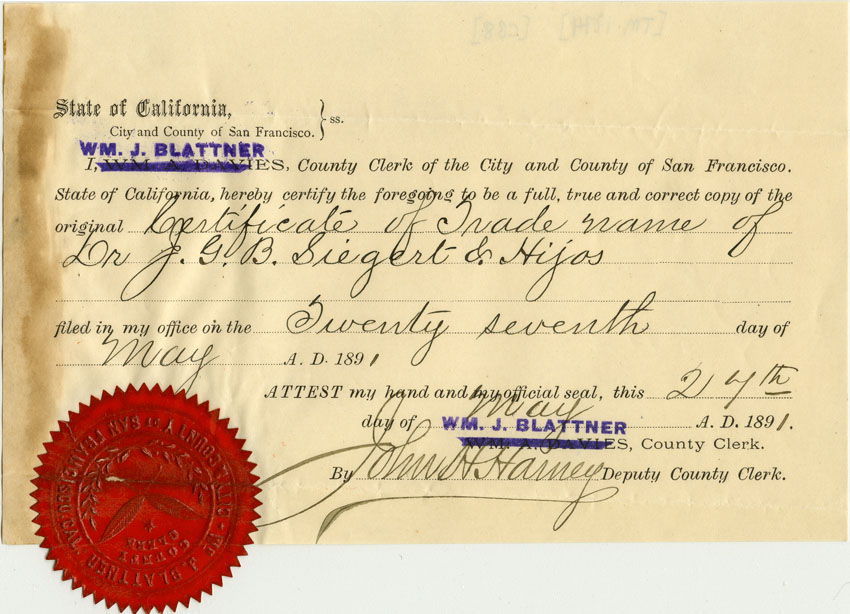 State of California,
City and County of San Francisco. } ss.
WM. J. BLATTNER
I, WM. A. DAVIES, County Clerk of the City and County of San Francisco.
State of California, hereby certify the foregoing to be a full, true and correct copy of the
original Certificate of Trade name of
Dr J. G. B. Siegert & Hijos
filed in my office on the Twenty seventh day of
May A. D. 1891
ATTEST my hand and my official seal, this 27th
day of May A. D. 1891.
WM. J. BLATTNER
WM. A. DAVIES, County Clerk.
By John H. Harney Deputy County Clerk.
COUNTY
CLERK